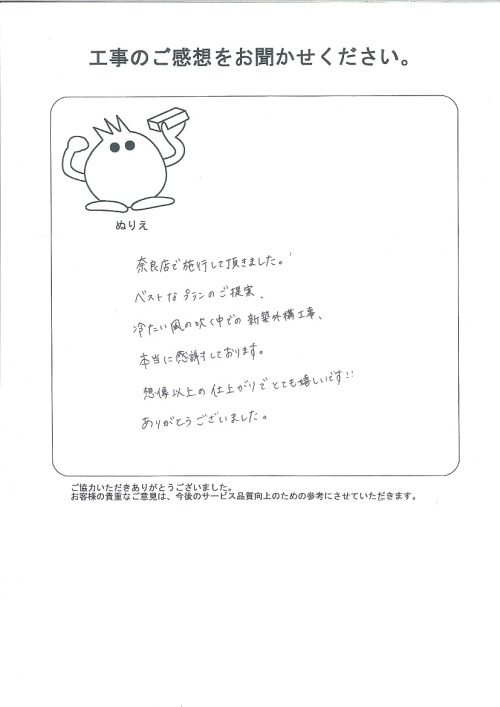 工事のご感想をお聞かせください。
ぬりえ
奈良店で施行して頂きました。
ベストなプランのご提案、
冷たい風の吹く中での新築外構工事、
本当に感謝しております。
想像以上の仕上がりでとても嬉しいです!!
ありがとうございました。
ご協力いただきありがとうございました。
お客様の貴重なご意見は、今後のサービス品質向上のための参考にさせていただきます。